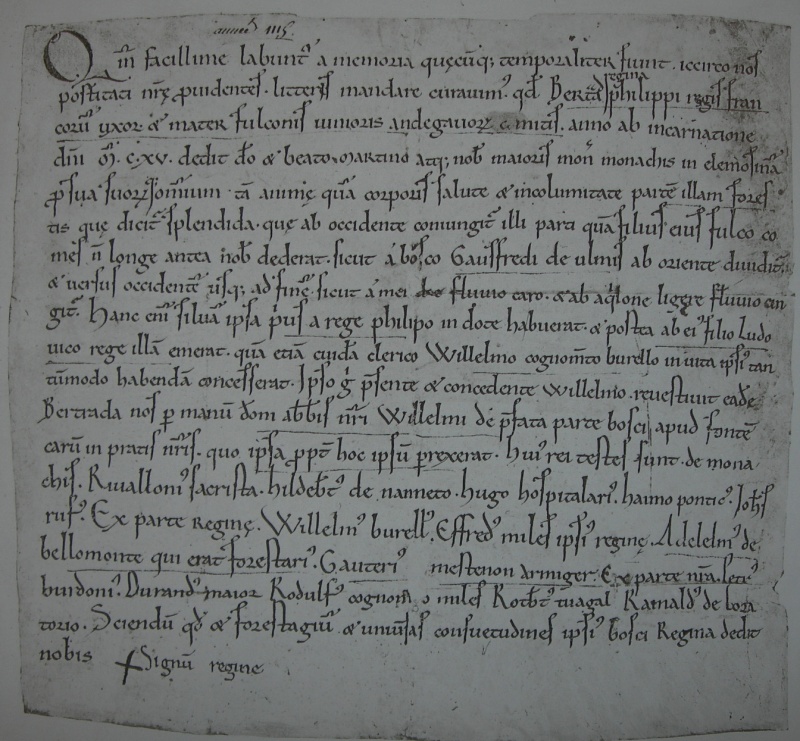 Qm̄ facillime labunt᷒ a memoria quęcūq; temporaliter fiunt. iccirco nos
posteritati nr̄ę ꝓuidentes. litteris mandare curauimꝰ. qd̄ Bertrada regina philippi regis fran
corū uxor & mater fulconis iunioris andegauorꝝ comitis. anno ab incarnatione
dn̄i M̄. C.XV. dedit dō & beato martino atq; nob̄ maioris mon̄ monachis in elemosina
ꝓ sua suorꝝ omnium tā animę quā corporis salute & incolumitate partē illam fores
tis que dicit᷒ splendida. que ab occidente coniungit᷒ illi parti quā filius eius fulco co
mes n̄ longe antea nob̄ dederat. sicut a bosco Gausfredi de ulmis ab oriente diuidit᷒.
& uersus occidentē usq; ad finē. sicut a mei fluuio caro. & ab aq͛lone ligere fluuio cin
git᷒. Hanc eni siluā ipsa p͛us a rege philipo in dote habuerat. & postea ab ei᷒ filio Ludo
uico rege illā emerat. quā etiā cuidā clerico Willelmo cognom̄to burello in uita ipsi᷒ tan
tūmodo habendā concesserat. Ipso g͛ p̄sente & concedente Willelmo. reuestiuit eadē
Bertrada nos ꝑ manū dom̄ abb̄is nr̄i Willelmi de p̄fata parte bosci apud fontē
carū in pratis nr̄is. quo ipsa ꝓpt̄ hoc ipsū ꝑrexerat. Hui᷒ rei testes sunt. de mona
chis. Riuallonꝰ sacrista. hildebt᷒ de nanneto. hugo hospitalari᷒. haimo pontic᷒. Joh̄s
ruf᷒. Ex parte Reginę. Willelm᷒ burell᷒. Effred᷒ miles ipsi᷒ reginę. Adelelm᷒ de
bellomonte qui erat forestari᷒. Gauteri᷒ mestenon armiger. Ex parte nr̄a.
burdoni᷒. Durand᷒ maior Rodulf᷒ cognom̄ o miles Rotb̄t᷒ Rainald᷒ de
torio. Sciendū qd̄ & forestagiū & uniuersas consuetudines ipsi᷒ bosci Regina dedit
nobis ✝ Signū regine